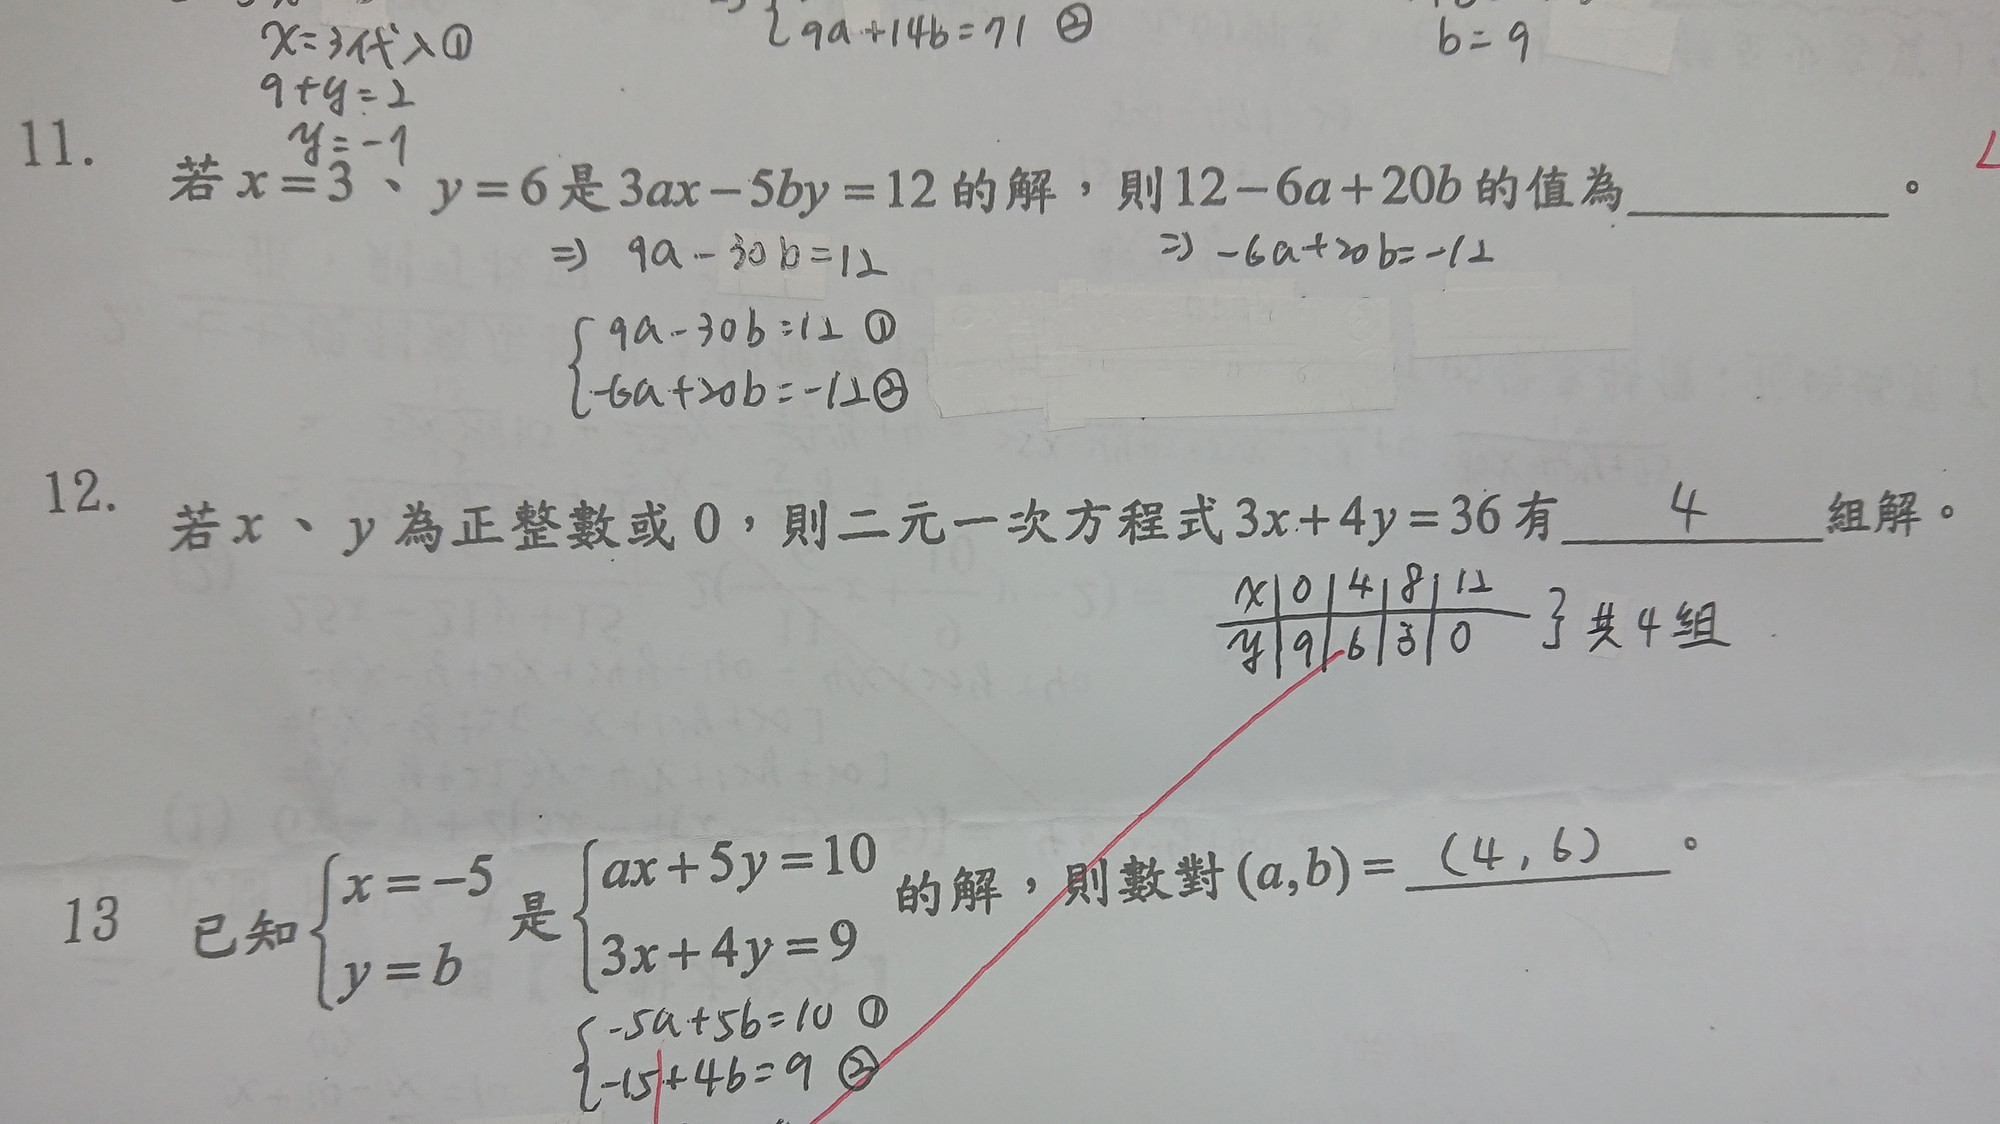 x=3代入①
9+y=2
y=-7
9a+14b=71 ②
b=9
11. 若x=3、y=6是3ax-5by=12的解，則12-6a+20b的值為____。
⇒ 9a-30b=12
⇒ -6a+20b=-12
{9a-30b=12 ①
-6a+20b=-12②
12. 若x、y為正整數或0，則二元一次方程式3x+4y=36有 4 組解。
x|0|4|8|12
y|9|6|3|0 } 共4組
13 已知{x=-5 y=b 是{ax+5y=10 3x+4y=9 的解，則數對(a,b)= (4,6) 。
{-5a+5b=10 ①
-15+4b=9 ②